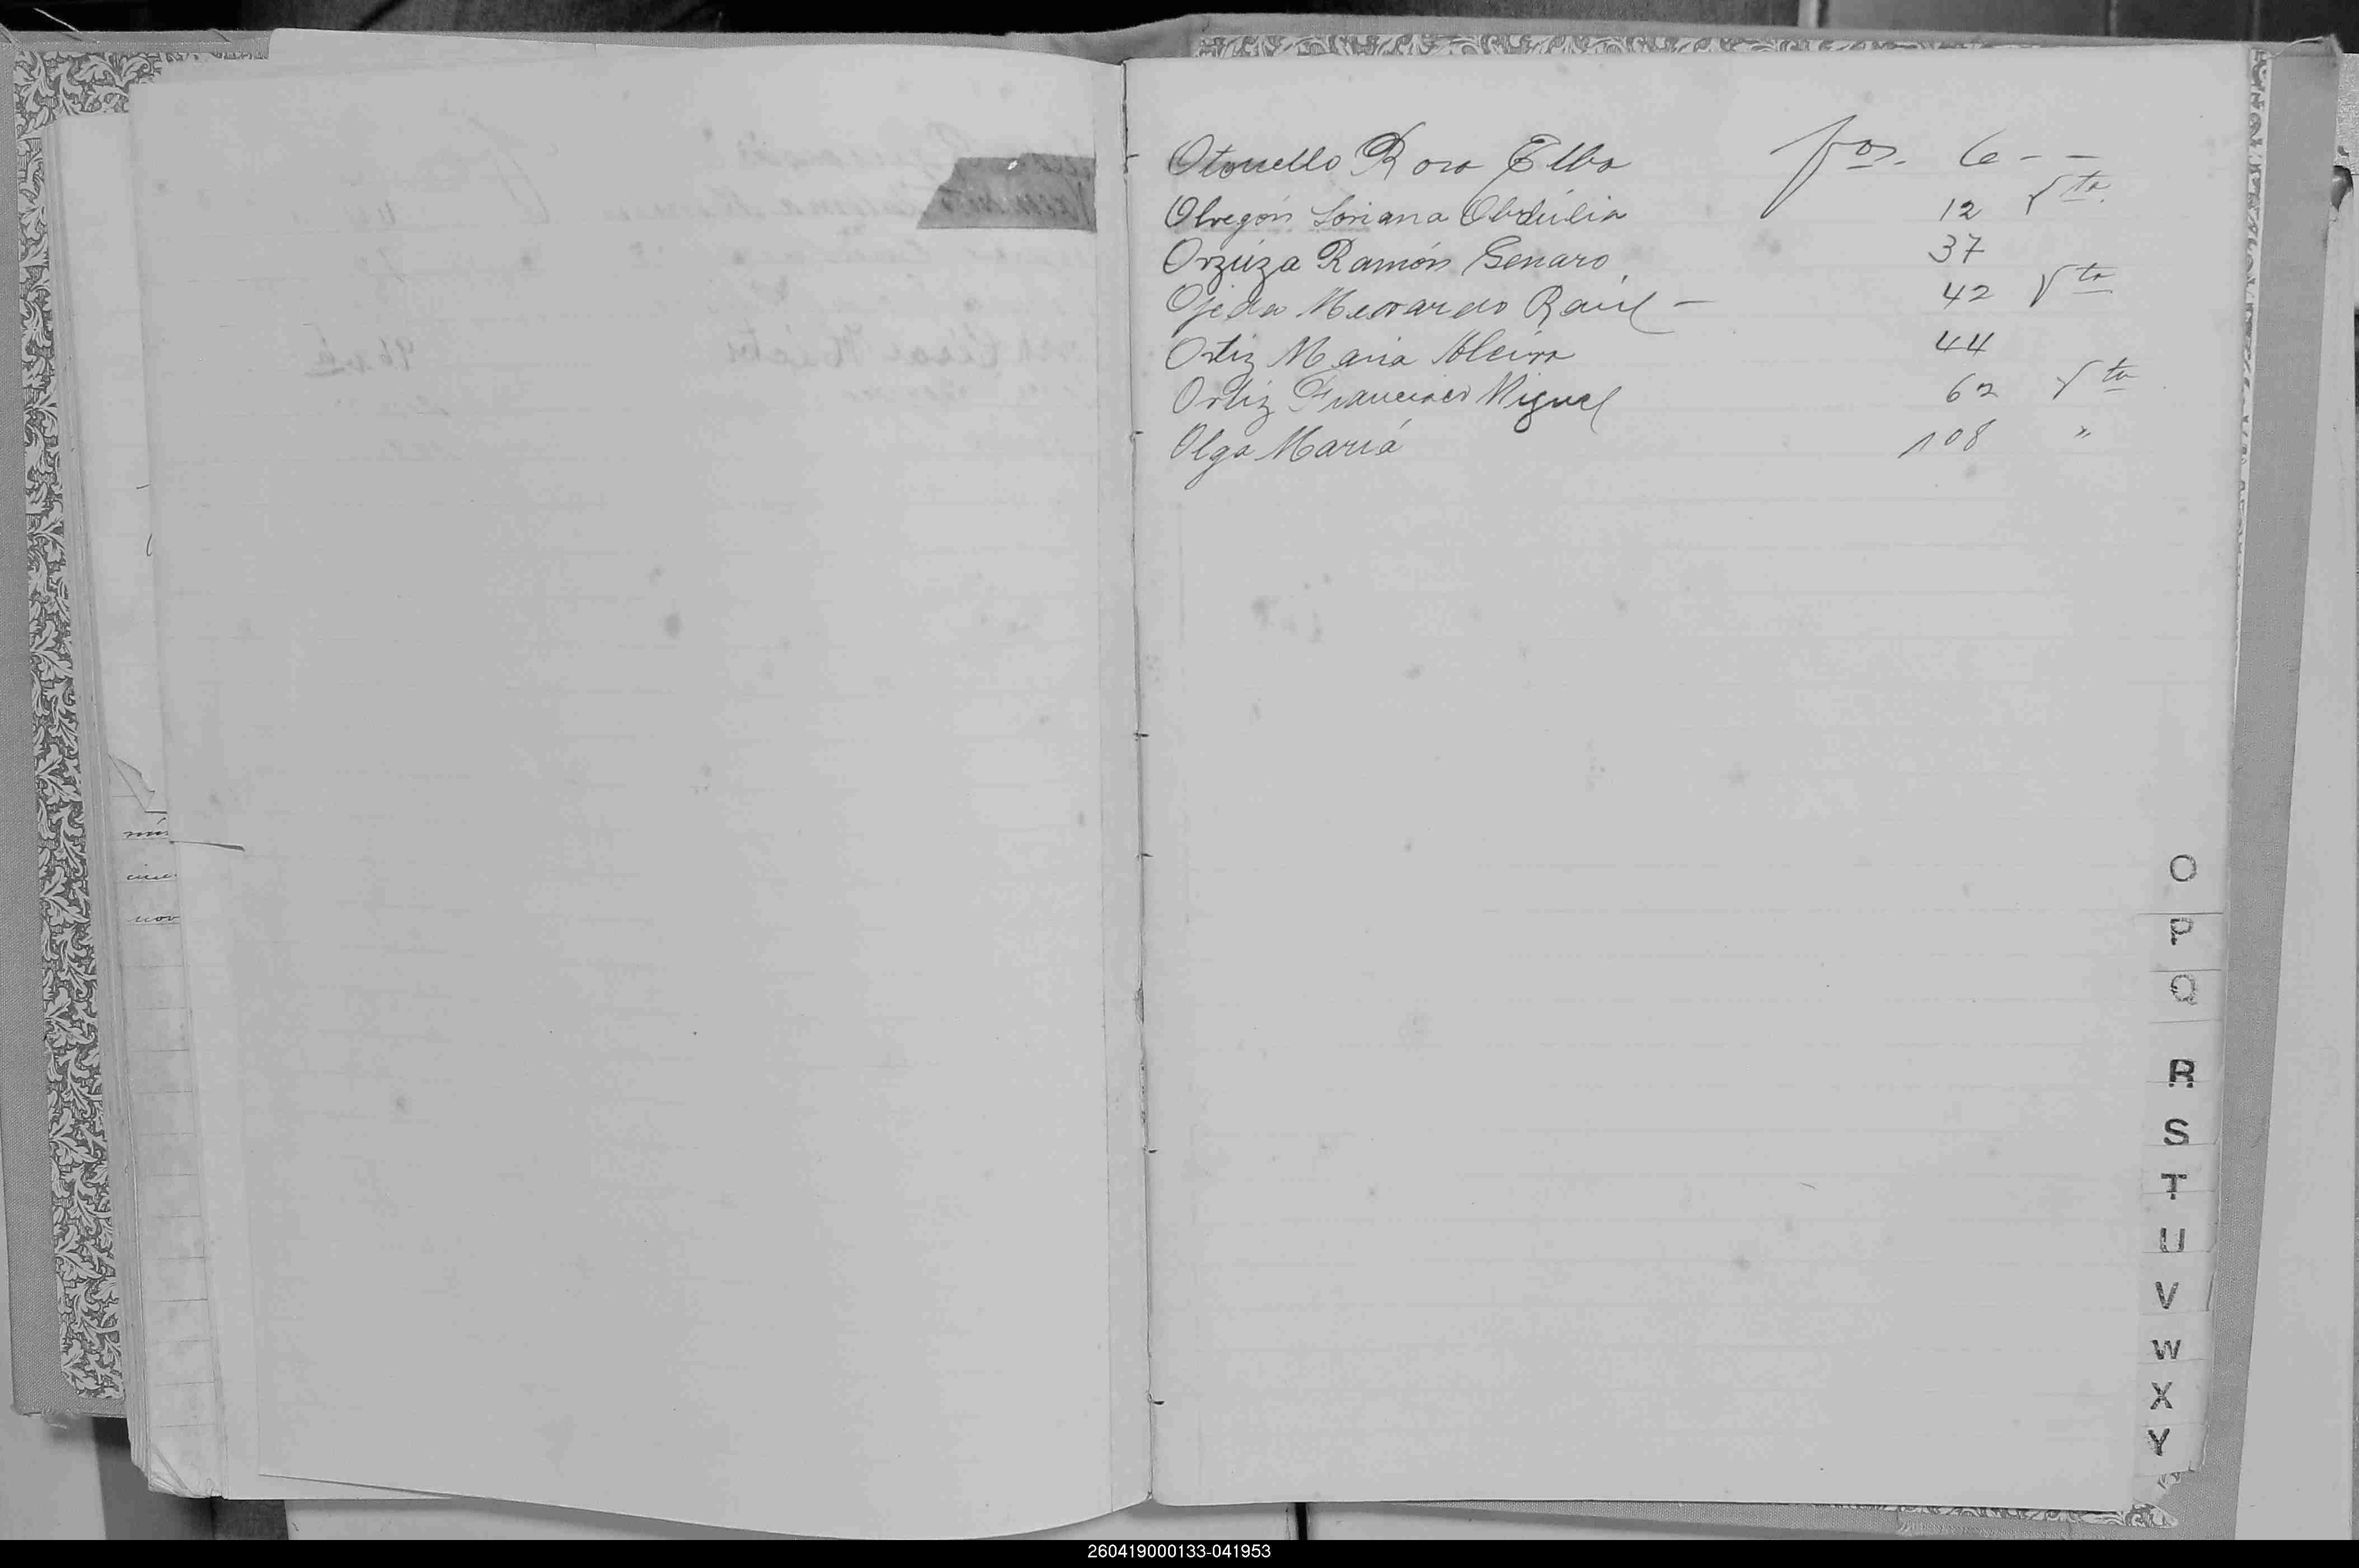 Otonello Rosa Elba fos. 6 - -
Obregón Soriana Obdúlia 12 Vta.
Orzúza Ramón Genaro 37
Ojeda Medardo Raúl - 42 Vta.
Ortiz Maria Alcira 44
Ortiz Francisco Miguel 62 Vta
Olga María 108 "
O
P
Q
R
S
T
U
V
W
X
Y
260419000133-041953